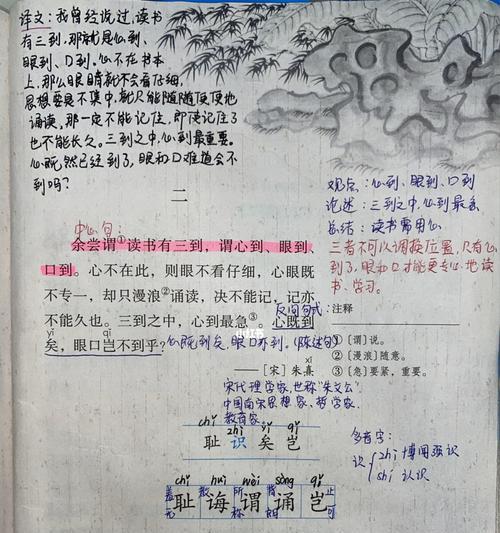 译文:我曾经说过,读书
有三到,那就是心到、
眼到、口到。心不在书本
上,那么眼睛就不会看仔细,
思想要是不集中,就只能随随便便地
诵读。那一定不能记住,即使记住了
也不能长久。三到之中,心到最重要。
心既然已经到了,眼和口难道会不
到吗?
二
中心句:
余尝谓①读书有三到,谓心到、眼到、
口到。心不在此,则眼不看仔细,心眼既
不专一,却只漫浪②诵读,决不能记,记亦
不能久也。三到之中,心到最急③。心既到
反问句式:
矣,眼口岂不到乎?
yǐ qǐ
心既到矣,眼口亦到。(陈述句)
xī
——[宋]朱熹
宋代理学家,世称“朱文公”
中国南宋思想家、哲学家、
教育家
观点:心到、眼到、口到
论述:三到之中,心到最急
总结:读书需用心
三者不可以调换位置,只有心
到了,眼和口才能更专心地读
书、学习。
注释
①[谓]说。
②[漫浪]随意。
③[急]要紧,重要。
chǐ zhì yǐ qǐ
耻 识 矣 岂
多音字:
识 zhì 博闻强识
shí 认识
chǐ huì wèi sòng qǐ
耻 诲 谓 诵 岂